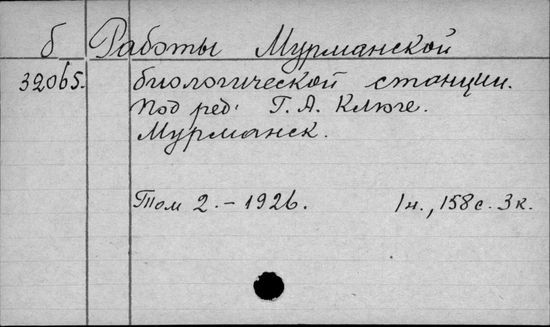 б Работы Мурманской
32065. биологической станции.
Под ред. Г. А. Клюге.
Мурманск.
Том 2. – 1926. 1н., 158 с. 3к.